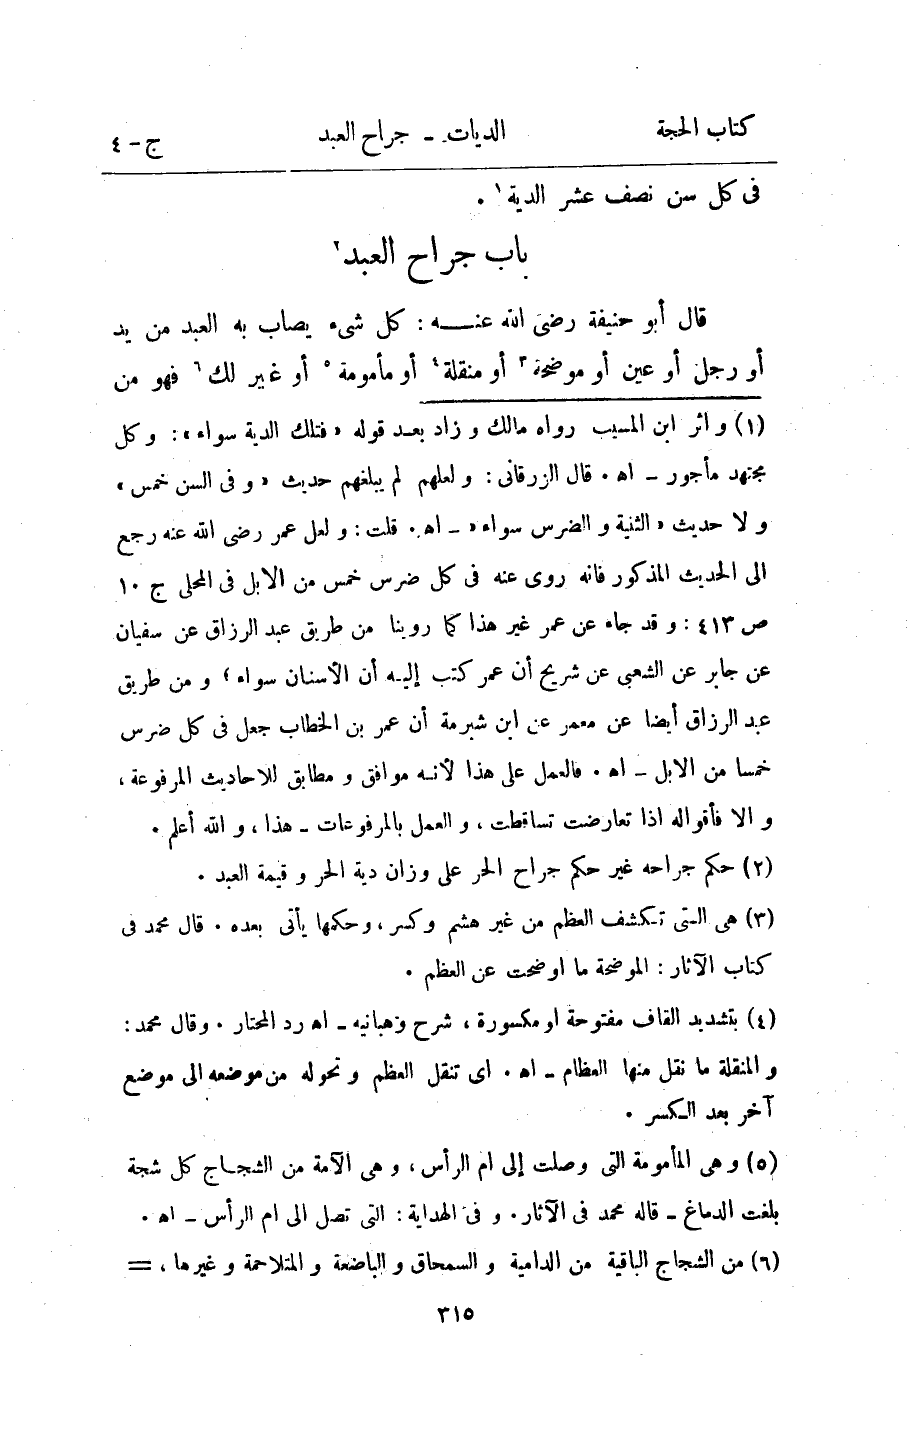 كتاب الحجة الديات - جراح العبد ج - ٤
فى كل سن نصف عشر الدية١ .
باب جراح العبد٢
قال أبو حنيفة رضى الله عنه : كل شىء يصاب به العبد من يد
أو رجل أو عين أو موضحة٣ أو منقلة٤ أو مأمومة٥ أو غير لك٦ فهو من
(١) و اثر ابن المسيب رواه مالك و زاد بعد قوله « فتلك الدية سواء » : و كل
مجتهد مأجور - اه . قال الزرقانى : و لعلهم لم يبلغهم حديث « و فى السن خمس »
و لا حديث « الثنية و الضرس سواء » - اه . قلت : و لعل عمر رضى الله عنه رجع
الى الحديث المذكور فانه روى عنه فى كل ضرس خمس من الابل فى المحلى ج ١٠
ص ٤١٣ : و قد جاء عن عمر غير هذا كما روينا من طريق عبد الرزاق عن سفيان
عن جابر عن الشعبى عن شريح أن عمر كتب إليه أن الأسنان سواء ؛ و من طريق
عبد الرزاق أيضا عن معمر عن ابن شبرمة أن عمر بن الخطاب جعل فى كل ضرس
خمسا من الابل - اه . فالعمل على هذا لأنه موافق و مطابق للاحاديث المرفوعة ،
و الا فأقواله اذا تعارضت تساقطت ، و العمل بالمرفوعات - هذا ، و الله أعلم .
(٢) حكم جراحه غير حكم جراح الحر على وزان دية الحر و قيمة العبد .
(٣) هى التى تكشف العظم من غير هشم وكسر ، وحكمها يأتى بعده . قال محمد فى
كتاب الآثار : الموضحة ما اوضحت عن العظم .
(٤) بتشديد القاف مفتوحة او مكسورة ، شرح وهبانيه - اه رد المحتار . وقال محمد :
و المنقلة ما نقل منها العظام - اه . اى تنقل العظم و تحوله من موضعه الى موضع
آخر بعد الكسر .
(٥) و هى المأمومة التى وصلت إلى ام الرأس ، و هى الآمة من الشجاج كل شجة
بلغت الدماغ - قاله محمد فى الآثار . و فى الهداية : التى تصل الى ام الرأس - اه .
(٦) من الشجاج الباقية من الدامية و السمحاق و الباضعة و المتلاحمة و غيرها ، =
٣١٥